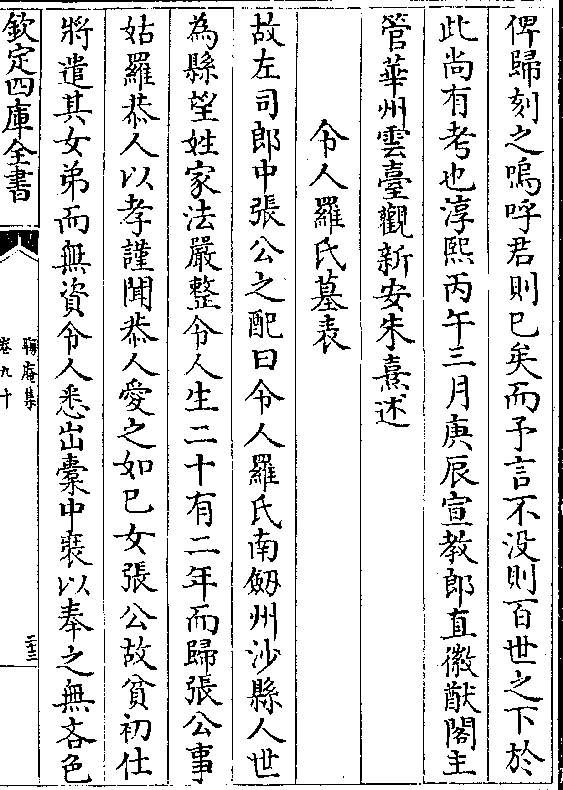 俾歸刻之嗚呼君則已矣而予言不没則百世之下於
此尚有考也淳熙丙午三月庚辰宣教郎直徽猷閣主
管華州雲臺觀新安朱熹述
令人羅氏墓表
故左司郎中張公之配曰令人羅氏南劔州沙縣人世
為縣望姓家法嚴整令人生二十有二年而歸張公事
姑羅恭人以孝謹聞恭人愛之如已女張公故貧初仕
將遣其女弟而無資令人悉出橐中裝以奉之無吝色
欽定四庫全書
晦庵集
卷九十
三十三